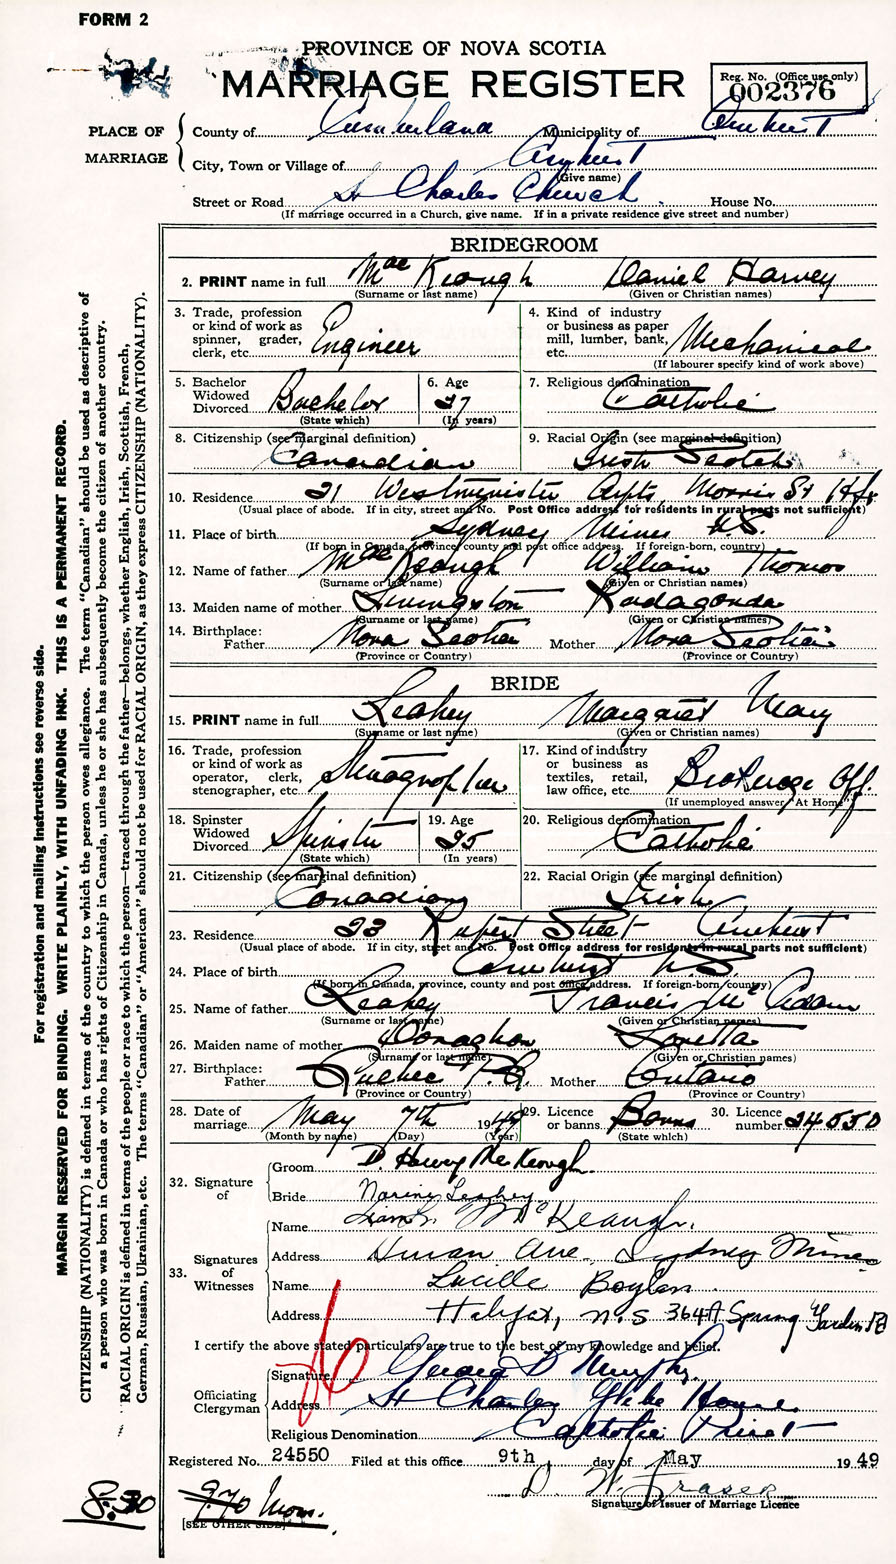 FORM 2
PROVINCE OF NOVA SCOTIA
MARRIAGE REGISTER
Reg. No. (Office use only)
002376
PLACE OF MARRIAGE
County of Cumberland Municipality of Amherst
City, Town or Village of Amherst
(Give name)
Street or Road St Charles Church House No.
(If marriage occurred in a Church, give name. If in a private residence give street and number)
BRIDEGROOM
2. PRINT name in full Mac Keough Daniel Harvey
(Surname or last name) (Given or Christian names)
3. Trade, profession or kind of work as spinner, grader, clerk, etc. Engineer
4. Kind of industry or business as paper mill, lumber, bank, etc. Mechanical
(If labourer specify kind of work above)
5. Bachelor Widowed Divorced Bachelor
(State which)
6. Age 27
(In years)
7. Religious denomination Catholic
8. Citizenship (see marginal definition) Canadian
9. Racial Origin (see marginal definition) Irish Scotch
10. Residence 21 Westminister Apts, Morris St Hfx
(Usual place of abode. If in city, street and No. Post Office address for residents in rural parts not sufficient)
11. Place of birth Sydney Mines N.S.
(If born in Canada, province, county and post office address. If foreign-born, country)
12. Name of father MacKeough William Thomas
(Surname or last name) (Given or Christian names)
13. Maiden name of mother Livingston Radagonda
(Surname or last name) (Given or Christian names)
14. Birthplace: Father Nova Scotia Mother Nova Scotia
(Province or Country) (Province or Country)
BRIDE
15. PRINT name in full Leahey Margaret Mary
(Surname or last name) (Given or Christian names)
16. Trade, profession or kind of work as operator, clerk, stenographer, etc. Stenographer
17. Kind of industry or business as textiles, retail, law office, etc. Brokerage Off.
(If unemployed answer "At Home")
18. Spinster Widowed Divorced Spinster
(State which)
19. Age 25
(In years)
20. Religious denomination Catholic
21. Citizenship (see marginal definition) Canadian
22. Racial Origin (see marginal definition) Irish
23. Residence 23 Rupert Street Amherst
(Usual place of abode. If in city, street and No. Post Office address for residents in rural parts not sufficient)
24. Place of birth Amherst N.S.
(If born in Canada, province, county and post office address. If foreign-born, country)
25. Name of father Leahey Francis Mc Adam
(Surname or last name) (Given or Christian names)
26. Maiden name of mother Donaghon Loretta
(Surname or last name) (Given or Christian names)
27. Birthplace: Father Quebec P.Q. Mother Ontario
(Province or Country) (Province or Country)
28. Date of marriage May 7th 1949
(Month by name) (Day) (Year)
29. Licence or banns Banns
(State which)
30. Licence number 24550
32. Signature of
Groom D. Harvey MacKeough.
Bride Leahey
33. Signatures of Witnesses
Name McKeough.
Address Ave. Sydney Mines
Name Lucille Boylan
Address Halifax, N.S 364A Spring Garden Rd
I certify the above stated particulars are true to the best of my knowledge and belief.
Officiating Clergyman
Signature George D Murphy
Address St Charles Glebe House
Religious Denomination Catholic Priest
Registered No. 24550 Filed at this office 9th day of May 1949
D. W. Fraser
Signature of Issuer of Marriage Licence
8.30
9.70 Mom.
[SEE OTHER SIDE]
For registration and mailing instructions see reverse side.
MARGIN RESERVED FOR BINDING. WRITE PLAINLY, WITH UNFADING INK. THIS IS A PERMANENT RECORD.
CITIZENSHIP (NATIONALITY) is defined in terms of the country to which the person owes allegiance. The term "Canadian" should be used as descriptive of
a person who was born in Canada or who has rights of Citizenship in Canada, unless he or she has subsequently become the citizen of another country.
RACIAL ORIGIN is defined in terms of the people or race to which the person—traced through the father—belongs, whether English, Irish, Scottish, French,
German, Russian, Ukrainian, etc. The terms "Canadian" or "American" should not be used for RACIAL ORIGIN, as they express CITIZENSHIP (NATIONALITY).